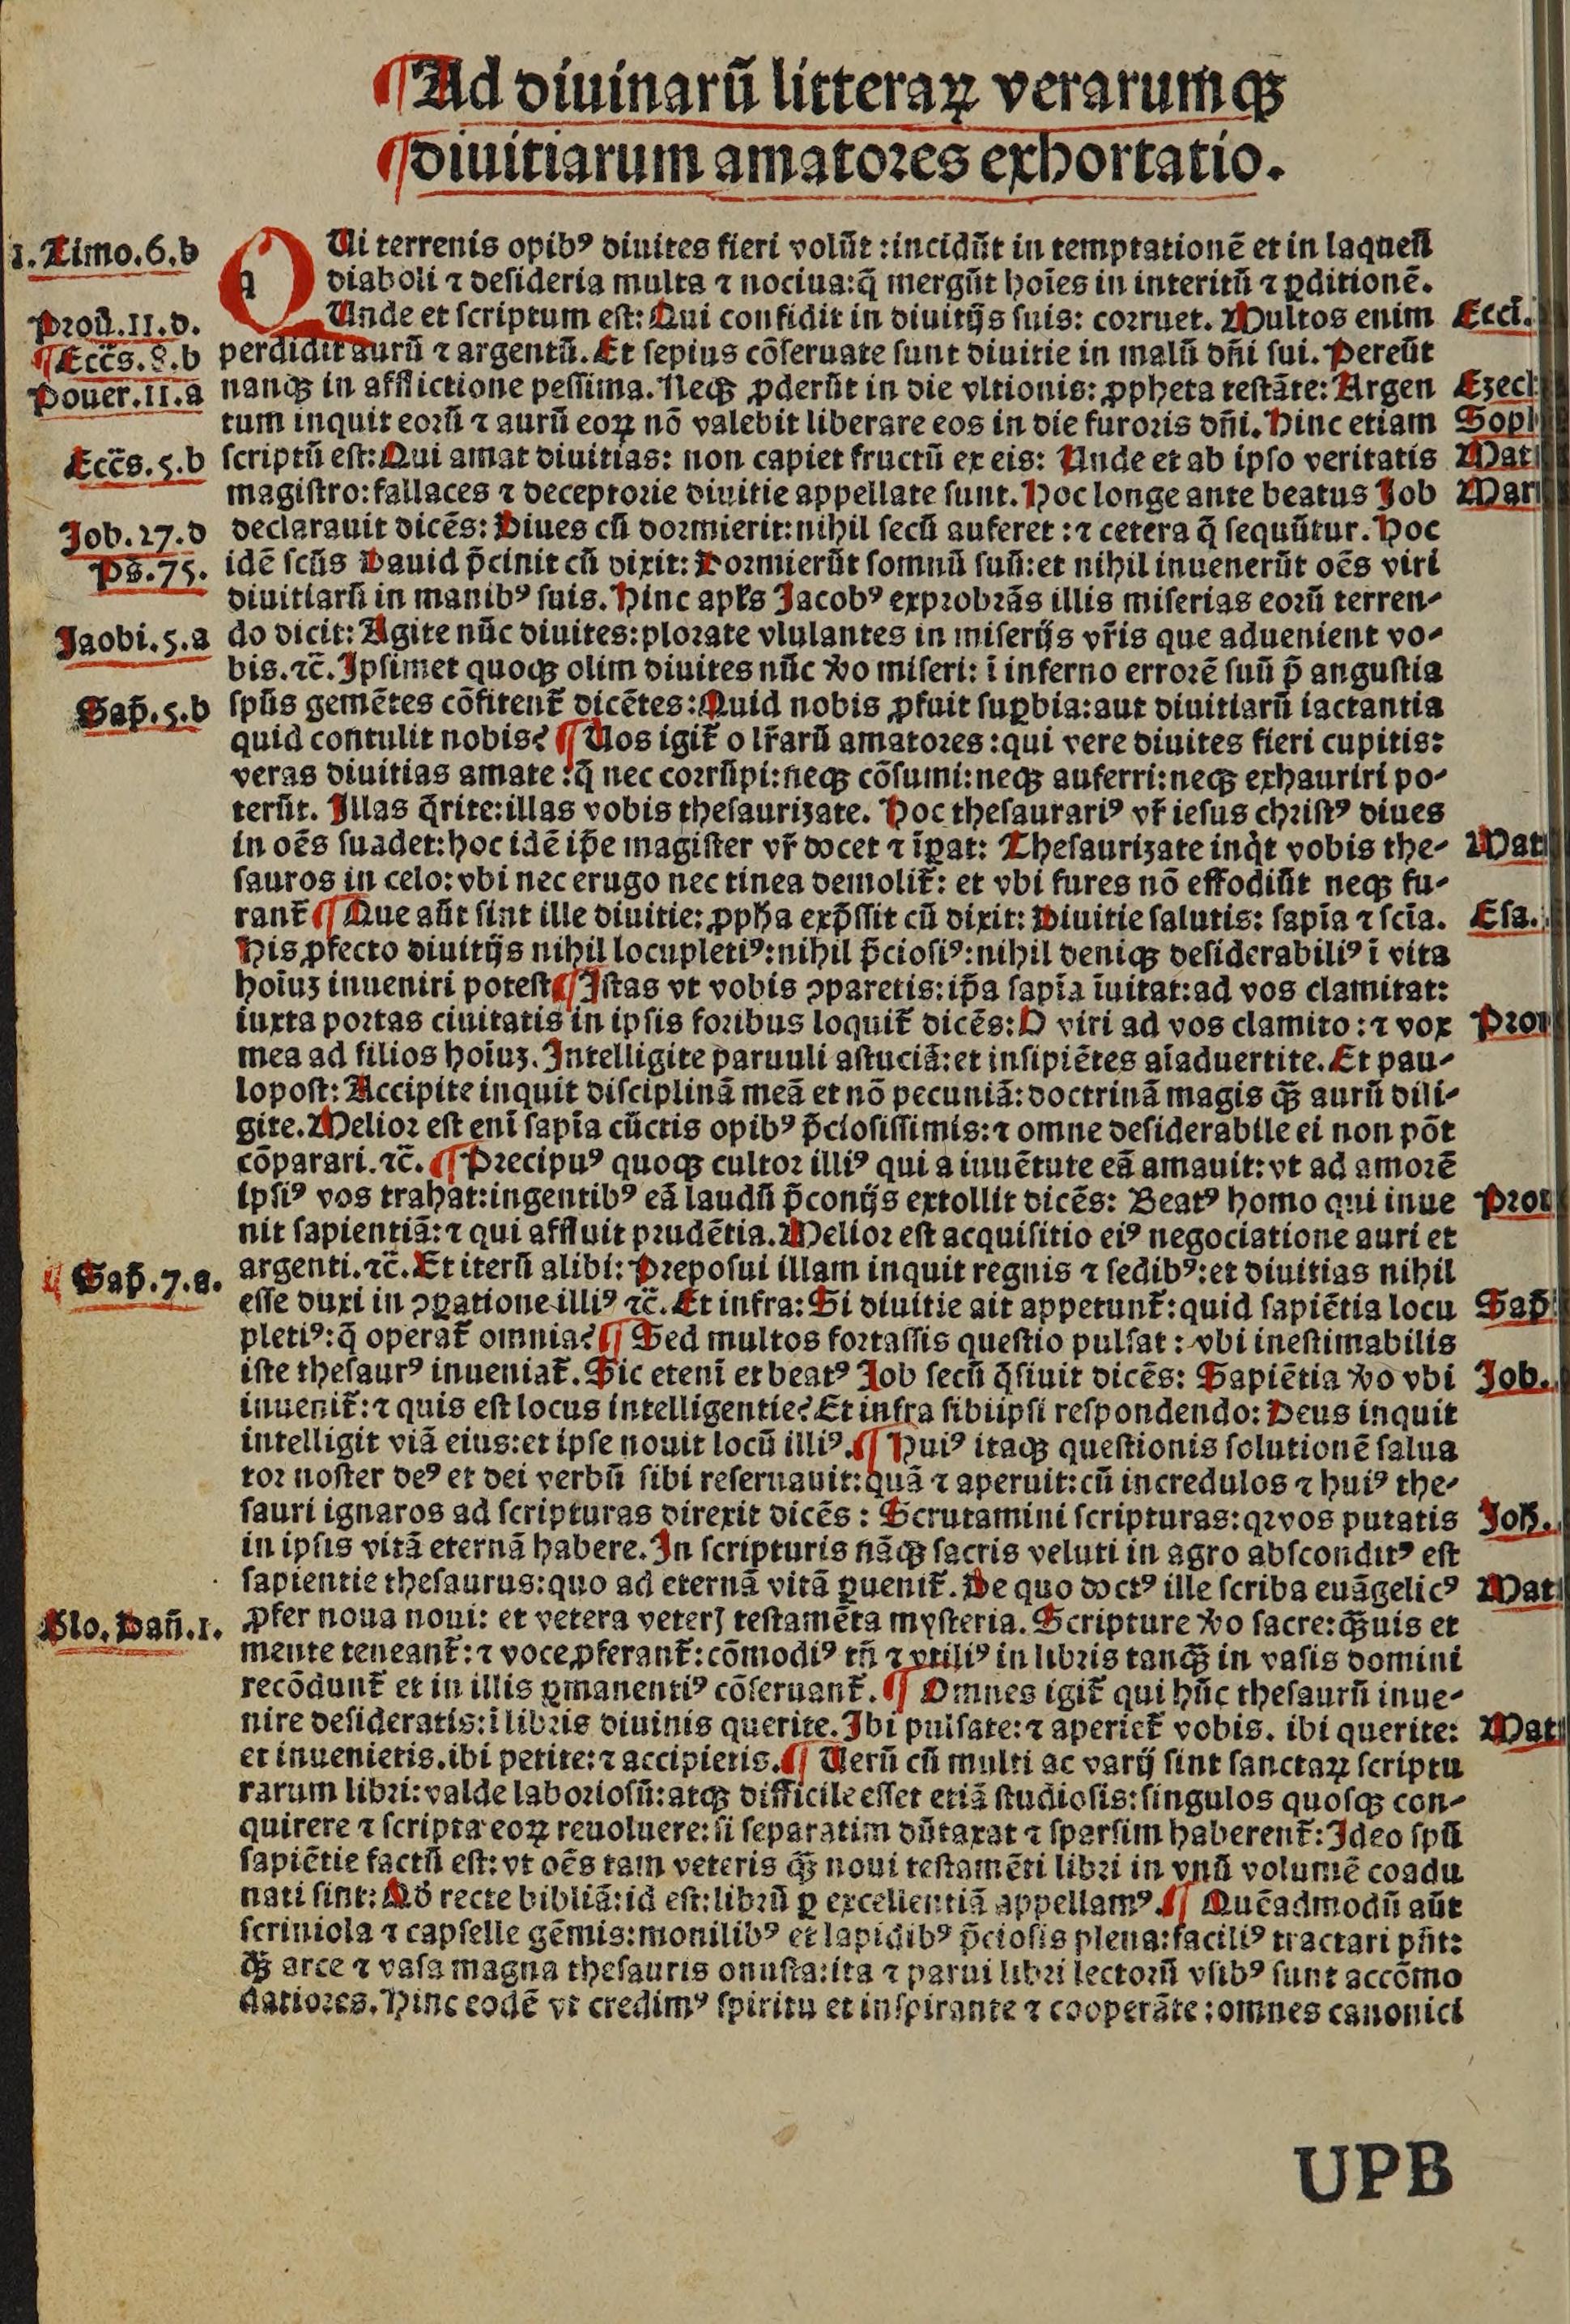 ¶Ad diuinarũ litteraꝝ verarumqꝫ
¶diuitiarum amatores exhortatio.
1. Timo. 6. b
Prou̅. 11. d.
¶Ecc̃s. 8. b
Pouer. 11. a
Ecc̃s. 5. b
Job. 27. d
Ps̃. 75.
Jaobi. 5. a
Sap̃. 5. b
Sap̃. 7. a.
Glo. Dañ. 1.
QUi terrenis opibꝰ diuites fieri volũt: incidũt in temptationẽ et in laqueũ
diaboli ⁊ desideria multa ⁊ nociua: q̃ mergũt hoı̃es in interitũ ⁊ ꝑditionẽ.
Unde et scriptum est: Qui confidit in diuitijs suis: corruet. Multos enim
perdidit aurũ ⁊ argentũ. Et sepius cõseruate sunt diuitie in malũ dñi sui. Pereũt
nanqꝫ in afflictione pessima. Neqꝫ ꝓderũt in die vltionis: ꝓpheta testãte: Argen
tum inquit eorũ ⁊ aurũ eoꝝ nõ valebit liberare eos in die furoris dñi. Hinc etiam
scriptũ est: Qui amat diuitias: non capiet fructũ ex eis: Unde et ab ipso veritatis
magistro: fallaces ⁊ deceptorie diuitie appellate sunt. Hoc longe ante beatus Job
declarauit dicẽs: Diues cũ dormierit: nihil secũ auferet: ⁊ cetera q̃ sequũtur. Hoc
idẽ scũs Dauid p̃cinit cũ dixit: Dormierũt somnũ suũ: et nihil inuenerũt oẽs viri
diuitiarũ in manibꝰ suis. Hinc apl̃s Jacobꝰ exprobrãs illis miserias eorũ terren-
do dicit: Agite nũc diuites: plorate vlulantes in miserijs vr̃is que aduenient vo-
bis. ⁊c̃. Ipsimet quoqꝫ olim diuites nũc ꝟo miseri: ĩ inferno errorẽ suũ p̃ angustia
spũs gemẽtes cõfitent̃ dicẽtes: Quid nobis ꝓfuit suꝑbia: aut diuitiarũ iactantia
quid contulit nobis? ¶ Uos igit̃ o lr̃arũ amatores: qui vere diuites fieri cupitis:
veras diuitias amate: q̃ nec corrũpi: neqꝫ cõsumi: neqꝫ auferri: neqꝫ exhauriri po-
terũt. Illas q̃rite: illas vobis thesaurizate. Hoc thesaurariꝰ vr̃ iesus christꝰ diues
in oẽs suadet: hoc idẽ ip̃e magister vr̃ docet ⁊ ı̃ꝑat: Thesaurizate inq̇t vobis the-
sauros in celo: vbi nec erugo nec tinea demolit̃: et vbi fures nõ effodiũt neqꝫ fu-
rant̃ ¶ Que aũt sint ille diuitie: ꝓpha exp̃ssit cũ dixit: Diuitie salutis: sapı̃a ⁊ scı̃a.
His ꝓfecto diuitijs nihil locupletiꝰ: nihil p̃ciosiꝰ: nihil deniqꝫ desiderabiliꝰ ĩ vita
hoı̃uꝫ inueniri potest ¶ Istas vt vobis ꝯparetis: ip̃a sapı̃a ĩuitat: ad vos clamitat:
iuxta portas ciuitatis in ipsis foribus loquit̃ dicẽs: O viri ad vos clamito: ⁊ vox
mea ad filios hoı̃uꝫ. Intelligite paruuli astuciã: et insipiẽtes aı̃aduertite. Et pau-
lopost: Accipite inquit disciplinã meã et nõ pecuniã: doctrinã magis q̃ꝫ aurũ dili-
gite. Melior est enĩ sapı̃a cũctis opibꝰ p̃ciosissimis: ⁊ omne desiderabile ei non põt
cõparari. ⁊c̃. ¶ Precipuꝰ quoqꝫ cultor illiꝰ qui a iuuẽtute eã amauit: vt ad amorẽ
ipsiꝰ vos trahat: ingentibꝰ eã laudũ p̃conijs extollit dicẽs: Beatꝰ homo qui inue
nit sapientiã: ⁊ qui affluit prudẽtia. Melior est acquisitio eiꝰ negociatione auri et
argenti. ⁊c̃. Et iterũ alibi: Preposui illam inquit regnis ⁊ sedibꝰ: et diuitias nihil
esse duxi in ꝯꝑatione illiꝰ ⁊c̃. Et infra: Si diuitie ait appetunt̃: quid sapiẽtia locu
pletiꝰ: q̃ operat̃ omnia? ¶ Sed multos fortassis questio pulsat: vbi inestimabilis
iste thesaurꝰ inueniat̃. Sic etenĩ et beatꝰ Job secũ q̃siuit dicẽs: Sapiẽtia ꝟo vbi
inuenit̃: ⁊ quis est locus intelligentie? Et infra sibiipsi respondendo: Deus inquit
intelligit viã eius: et ipse nouit locũ illiꝰ. ¶ Huiꝰ itaqꝫ questionis solutionẽ salua
tor noster deꝰ et dei verbũ sibi reseruauit: quã ⁊ aperuit: cũ incredulos ⁊ huiꝰ the-
sauri ignaros ad scripturas direxit dicẽs: Scrutamini scripturas: qꝛ vos putatis
in ipsis vitã eternã habere. In scripturis nãqꝫ sacris veluti in agro absconditꝰ est
sapientie thesaurus: quo ad eternã vitã ꝑuenit̃. De quo doctꝰ ille scriba euãgelicꝰ
ꝓfer noua noui: et vetera veterꝭ testamẽta mysteria. Scripture ꝟo sacre: q̃ꝫuis et
mente teneant̃: ⁊ voce ꝓferant̃: cõmodiꝰ tñ ⁊ vtiliꝰ in libris tanq̃ꝫ in vasis domini
recõdunt̃ et in illis ꝑmanentiꝰ cõseruant̃. ¶ Omnes igit̃ qui hũc thesaurũ inue-
nire desideratis: ĩ libris diuinis querite. Ibi pulsate: ⁊ apericꝉ vobis. ibi querite:
et inuenietis. ibi petite: ⁊ accipietis. ¶ Uerũ cũ multi ac varij sint sanctaꝝ scriptu
rarum libri: valde laboriosũ: atqꝫ difficile esset etiã studiosis: singulos quosqꝫ con-
quirere ⁊ scripta eoꝝ reuoluere: si separatim dũtaxat ⁊ sparsim haberent̃: Ideo spũ
sapiẽtie factũ est: vt oẽs tam veteris q̃ꝫ noui testamẽti libri in vnũ volumẽ coadu
nati sint: Qõ recte bibliã: id est: librũ ꝑ excellentiã appellamꝰ. ¶ Quẽadmodũ aũt
scriniola ⁊ capselle gẽmis: monilibꝰ et lapidibꝰ p̃ciosis plena: faciliꝰ tractari pñt:
q̃ꝫ arce ⁊ vasa magna thesauris onusta: ita ⁊ parui libri lectorũ vsibꝰ sunt accõmo
datiores. Hinc eodẽ vt credimꝰ spiritu et inspirante ⁊ cooperãte: omnes canonici
Eccl̃.
Ezech
Soph
Mat
Mar
Mat
Esa.
Prou
Prou
Sap̃
Job.
Joh̃.
Mat
Mat
UPB